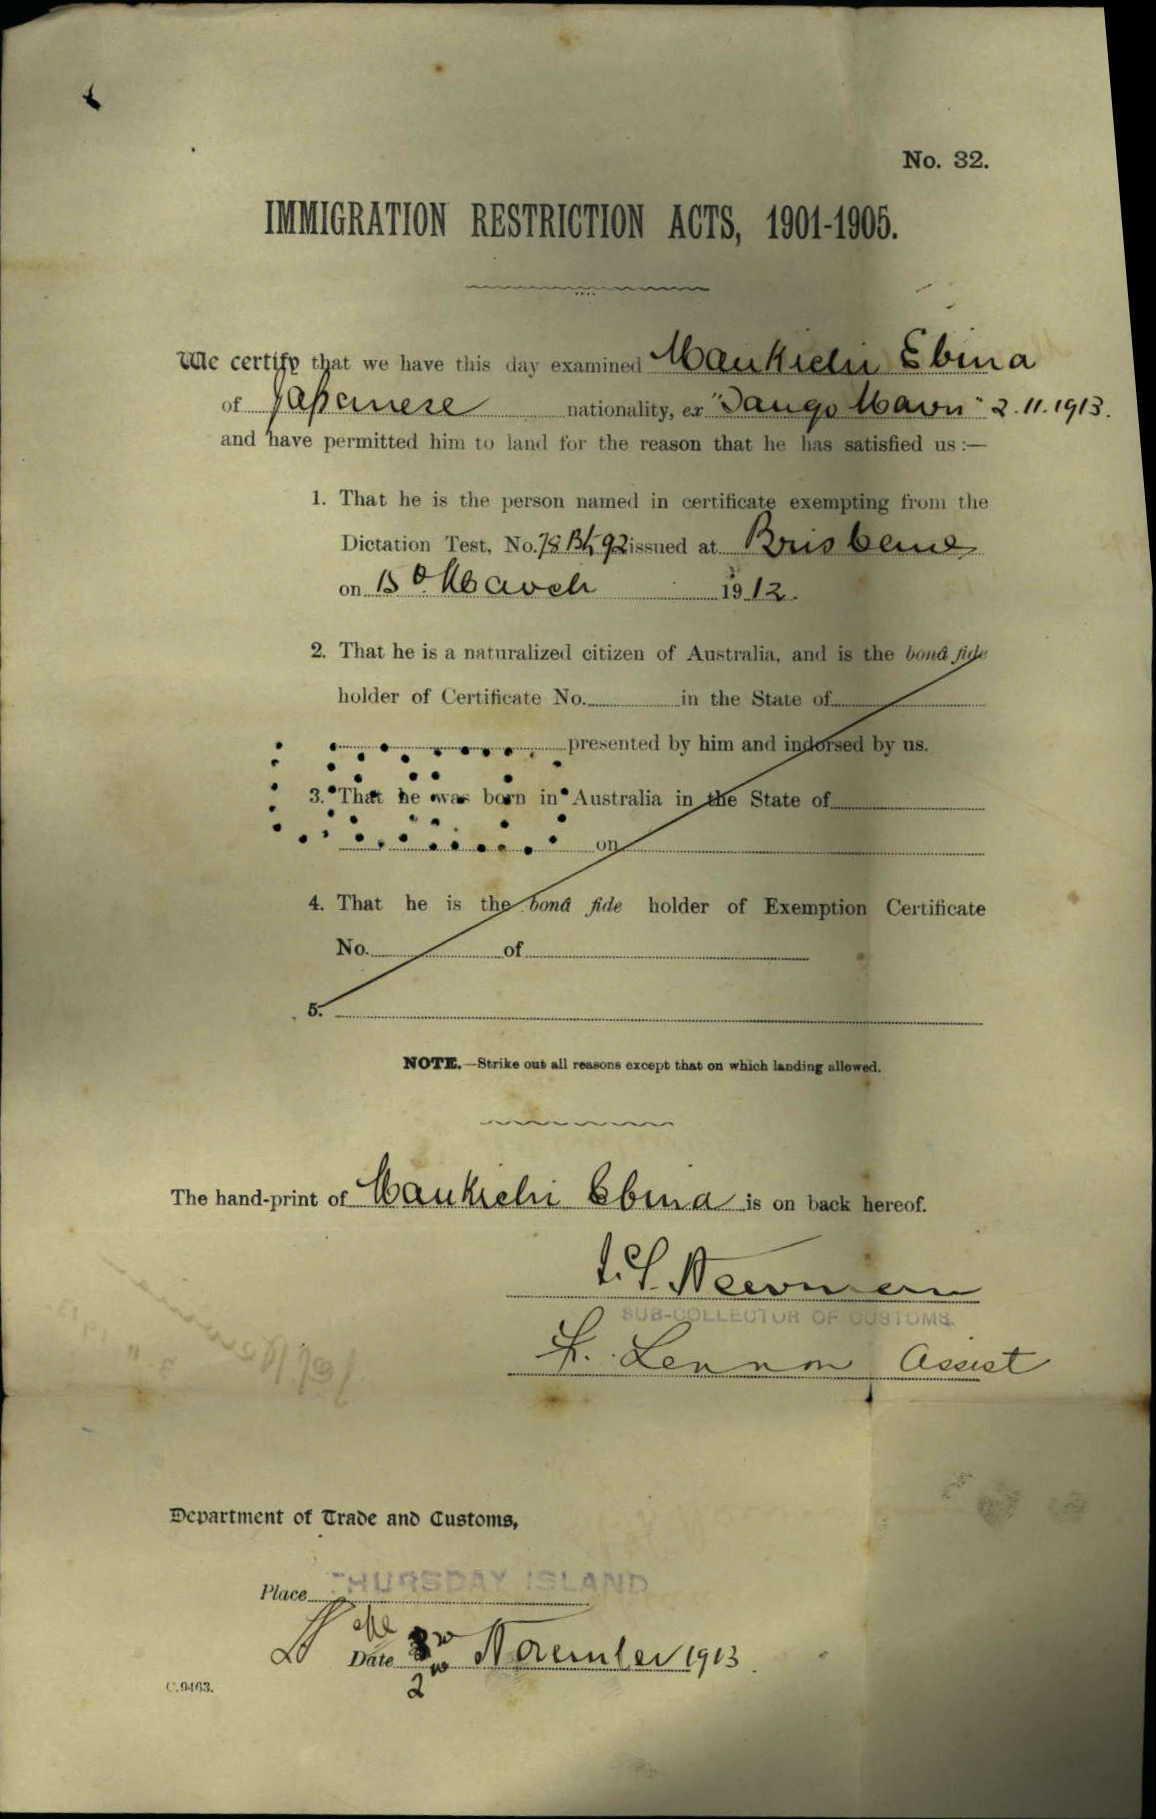 No. 32.
IMMIGRATION RESTRICTION ACTS, 1901-1905.
We certify that we have this day examined Mankichi Ebina
of Japanese nationality, ex "Tango Maru" 2.11.1913.
and have permitted him to land for the reason that he has satisfied us:—
1. That he is the person named in certificate exempting from the
Dictation Test, No. 78 Bk 92 issued at Brisbane
on 15th March 1912.
2. That he is a naturalized citizen of Australia, and is the bonâ fide
holder of Certificate No. in the State of
presented by him and indorsed by us.
3. That he was born in Australia in the State of
on
4. That he is the bonâ fide holder of Exemption Certificate
No. of
5.
NOTE.—Strike out all reasons except that on which landing allowed.
The hand-print of Mankichi Ebina is on back hereof.
Newman
SUB-COLLECTOR OF CUSTOMS.
Lennon Assist
Department of Trade and Customs,
Place THURSDAY ISLAND
Date November 1913.
2nd
C.9463.